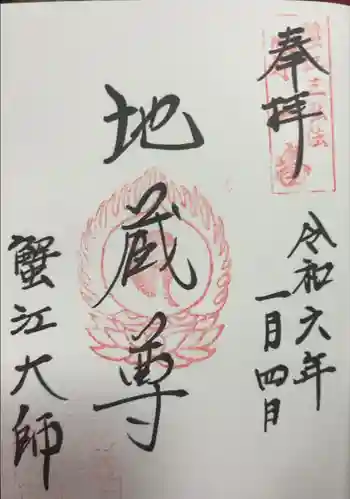 奉拝
令和六年
一月四日
地蔵尊
蟹江大師